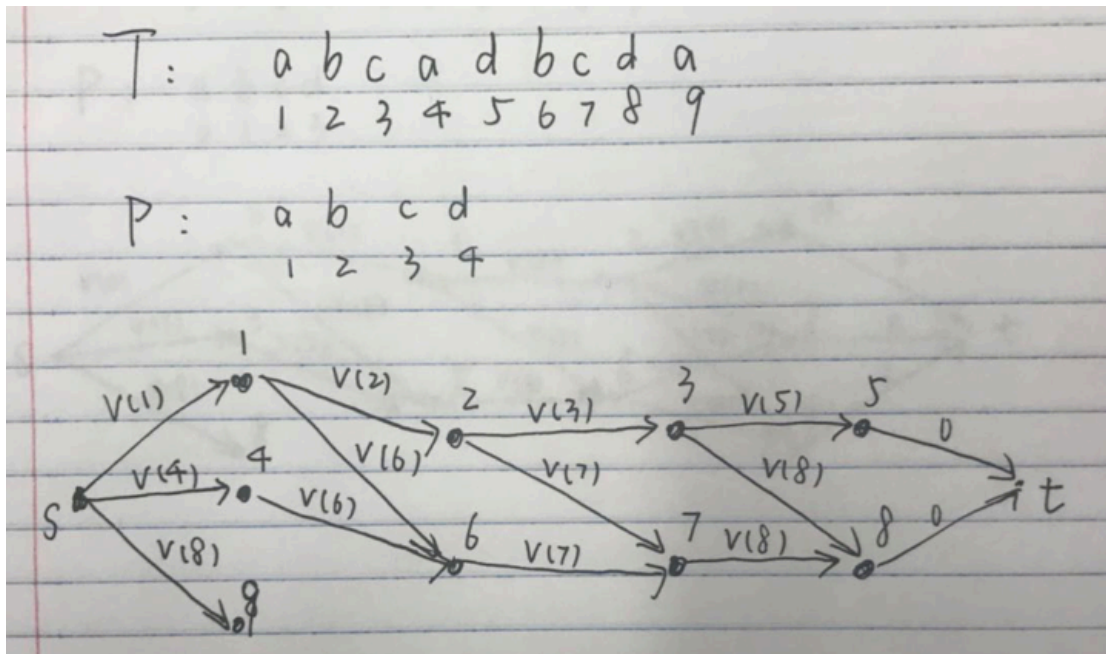 T: a b c a d b c d a
1 2 3 4 5 6 7 8 9
P: a b c d
1 2 3 4
1
V(1) V(2) 2 V(3) 3 V(5) 5 0
V(4) 4 V(6) V(7) V(8) t
S V(6) 6 V(7) 7 V(8) 8 0
V(8) 9